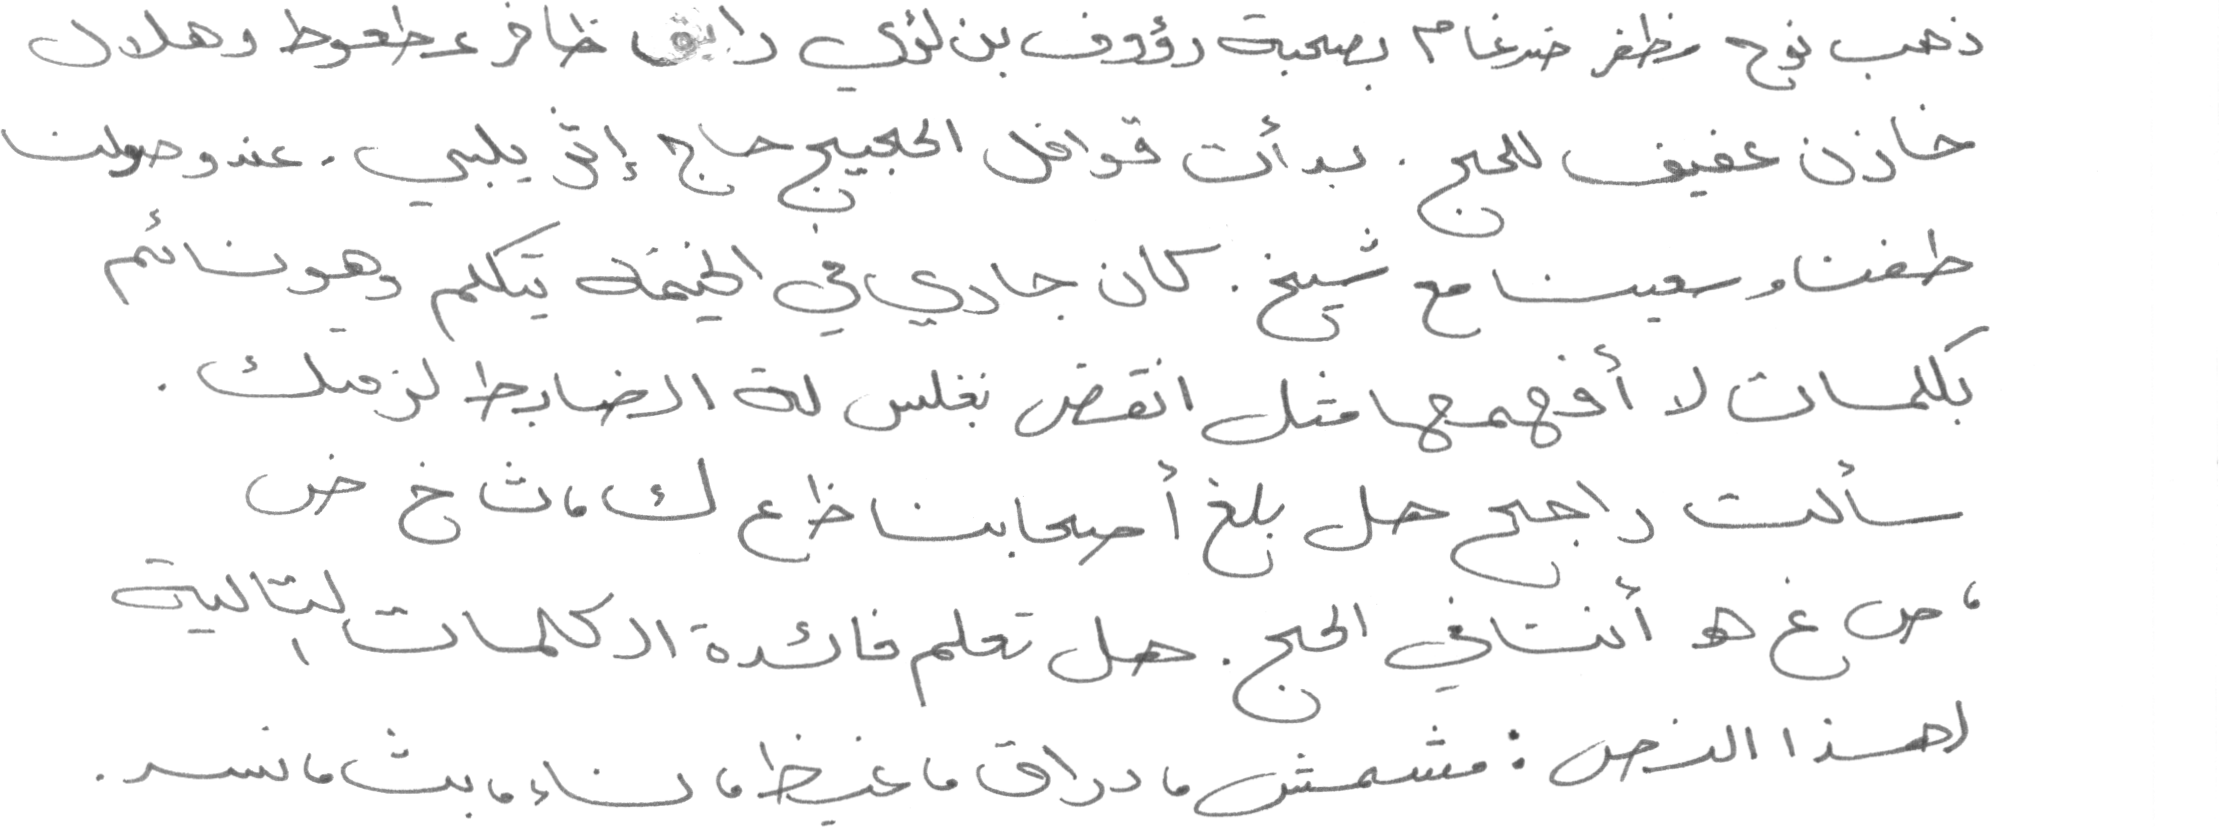 ذهب نوح مظفر ضرغام بصحبة رؤوف بن لؤي رائق ظافر عطعوط وهلال
خازن عفيف للحج . بدأت قوافل الحجيج حاج إثر يلبي . عند وصولنا
طفنا وسعينا مع شيخ . كان جاري في الخيمة يتكلم وهو نائم
بكلمات لا أفهمها مثل انقض نغلس لهة الضابط لزمتك .
سألت راجح هل بلغ أصحابنا ظ ع ك ، ث خ ض
، ص غ ه أننا في الحج . هل تعلم فائدة الكلمات التالية
لهذا النص : مشمش ، دراق ، غيظ ، ناء ، بث ، نسر .